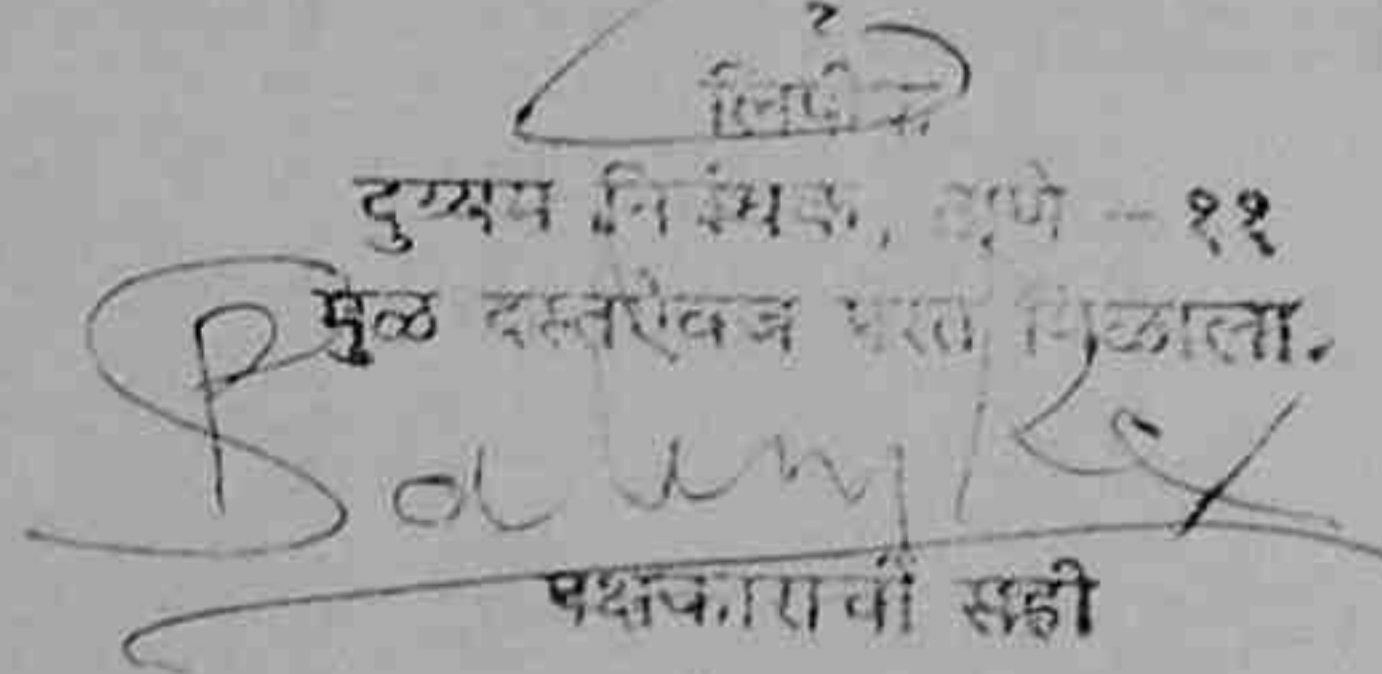 लिपीक
दुय्यम निबंधक, ठाणे - ११
मुळ दस्तऐवज परत मिळाला.
पक्षकाराची सही